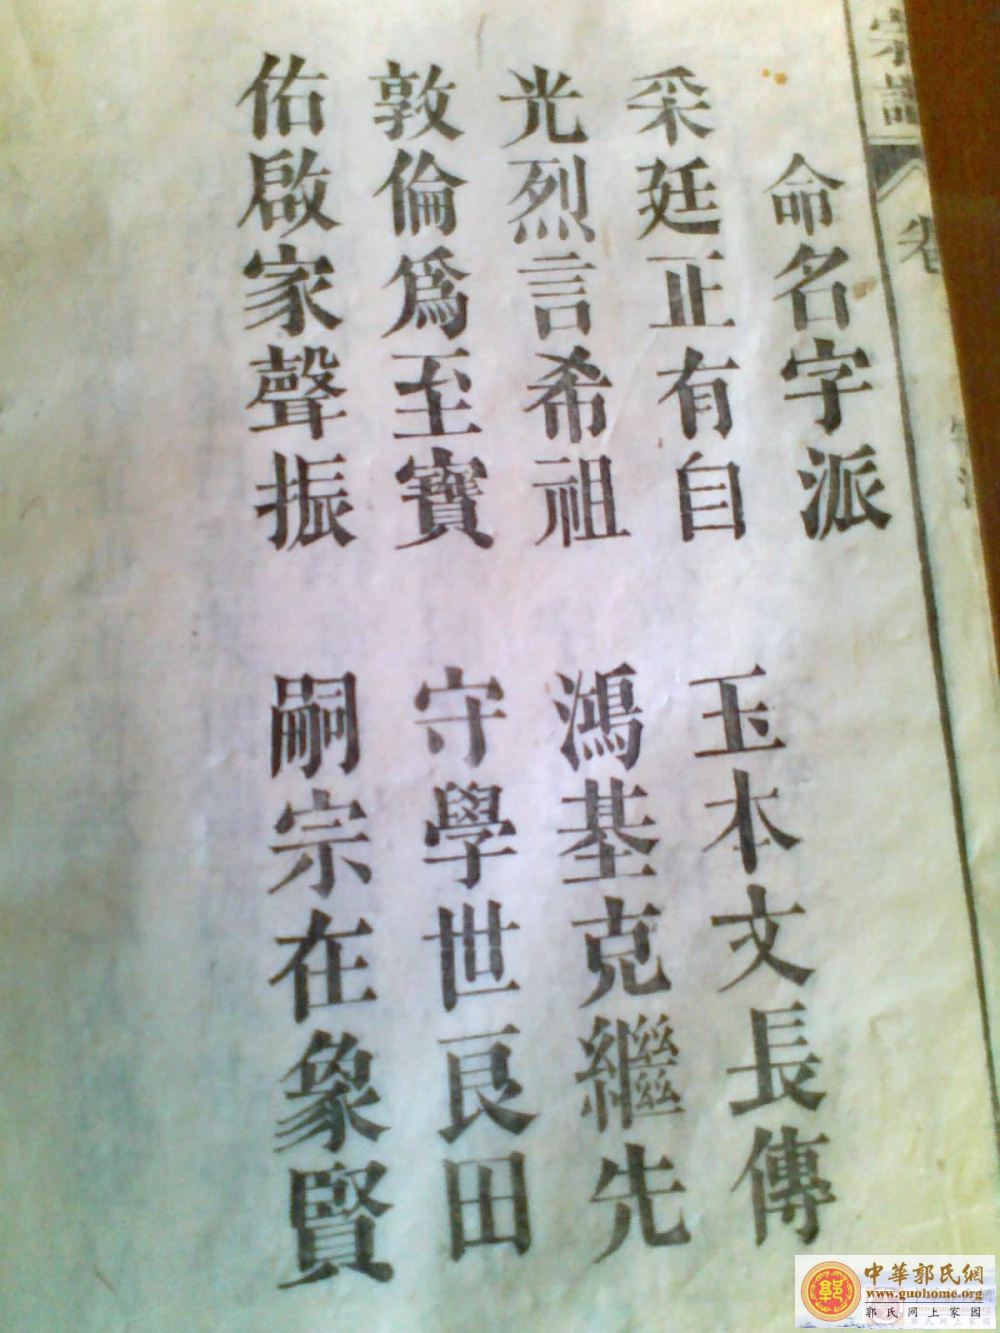 宗譜
卷
命名字派
采廷正有自
玉本文長傳
光烈言希祖
鴻基克繼先
敦倫爲至寶
守學世良田
佑啟家聲振
嗣宗在象賢
中華郭氏網
www.guohome.org
郭氏网上家园